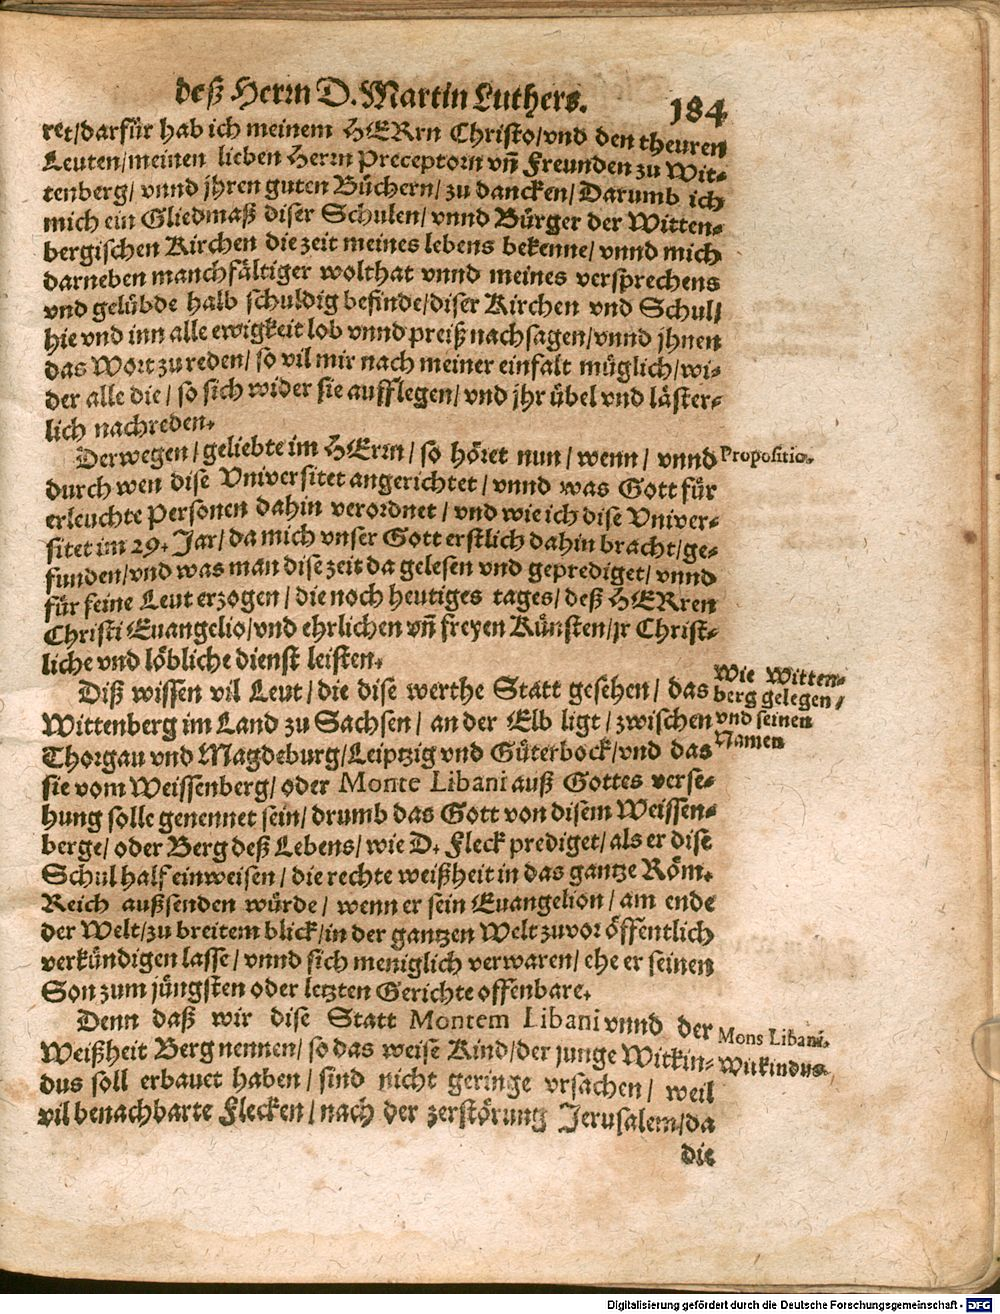 deß Herrn D. Martin Luthers. 184
ret/darfür hab ich meinem HERrn Christo/vnd den theuren
Leuten/meinen lieben Herrn Preceptorn vñ Freunden zu Wit-
tenberg/ vnnd jhren guten Büchern/ zu dancken/ Darumb ich
mich ein Gliedmaß diser Schulen/ vnnd Bürger der Witten-
bergischen Kirchen die zeit meines lebens bekenne/ vnnd mich
darneben manchfältiger wolthat vnnd meines versprechens
vnd gelübde halb schuldig befinde/diser Kirchen vnd Schul/
hie vnd inn alle ewigkeit lob vnnd preiß nachsagen/vnnd jhnen
das Wort zu reden/ so vil mir nach meiner einfalt müglich/wi-
der alle die/ so sich wider sie aufflegen/ vnd jhr übel vnd läster-
lich nachreden.
Derwegen/ geliebte im HErrn/ so höret nun/ wenn/ vnnd
Propositio.
durch wen dise Vniversitet angerichtet/ vnnd was Gott für
erleuchte Personen dahin verordnet/ vnd wie ich dise Vniver-
sitet im 29. Jar/ da mich vnser Gott erstlich dahin bracht/ge-
funden/vnd was man dise zeit da gelesen vnd geprediget/ vnnd
für feine Leut erzogen/ die noch heutiges tages/ deß HERren
Christi Euangelio/vnd ehrlichen vñ freyen Künsten/jr Christ-
liche vnd löbliche dienst leisten.
Diß wissen vil Leut/ die dise werthe Statt gesehen/ das
Wie Witten-
berg gelegen/
vnd seinen
Namen
Wittenberg im Land zu Sachsen/ an der Elb ligt/ zwischen
Thorgau vnd Magdeburg/Leiptzig vnd Güterbock/vnd das
sie vom Weissenberg/ oder Monte Libani auß Gottes verse-
hung solle genennet sein/ drumb das Gott von disem Weissen-
berge/ oder Berg deß Lebens/ wie D. Fleck prediget/ als er dise
Schul half einweisen/ die rechte weißheit in das gantze Röm.
Reich außsenden würde/ wenn er sein Euangelion/ am ende
der Welt/zu breitem blick/in der gantzen Welt zuvor öffentlich
verkündigen lasse/ vnnd sich meniglich verwaren/ ehe er seinen
Son zum jüngsten oder letzten Gerichte offenbare.
Denn daß wir dise Statt Montem Libani vnnd der
Mons Libani.
Weißheit Berg nennen/ so das weise Kind/der junge Witkin-
Witkindus
dus soll erbauet haben/ sind nicht geringe vrsachen/ weil
vil benachbarte Flecken/ nach der zerstörung Jerusalem/da
die
Digitalisierung gefördert durch die Deutsche Forschungsgemeinschaft - DFG